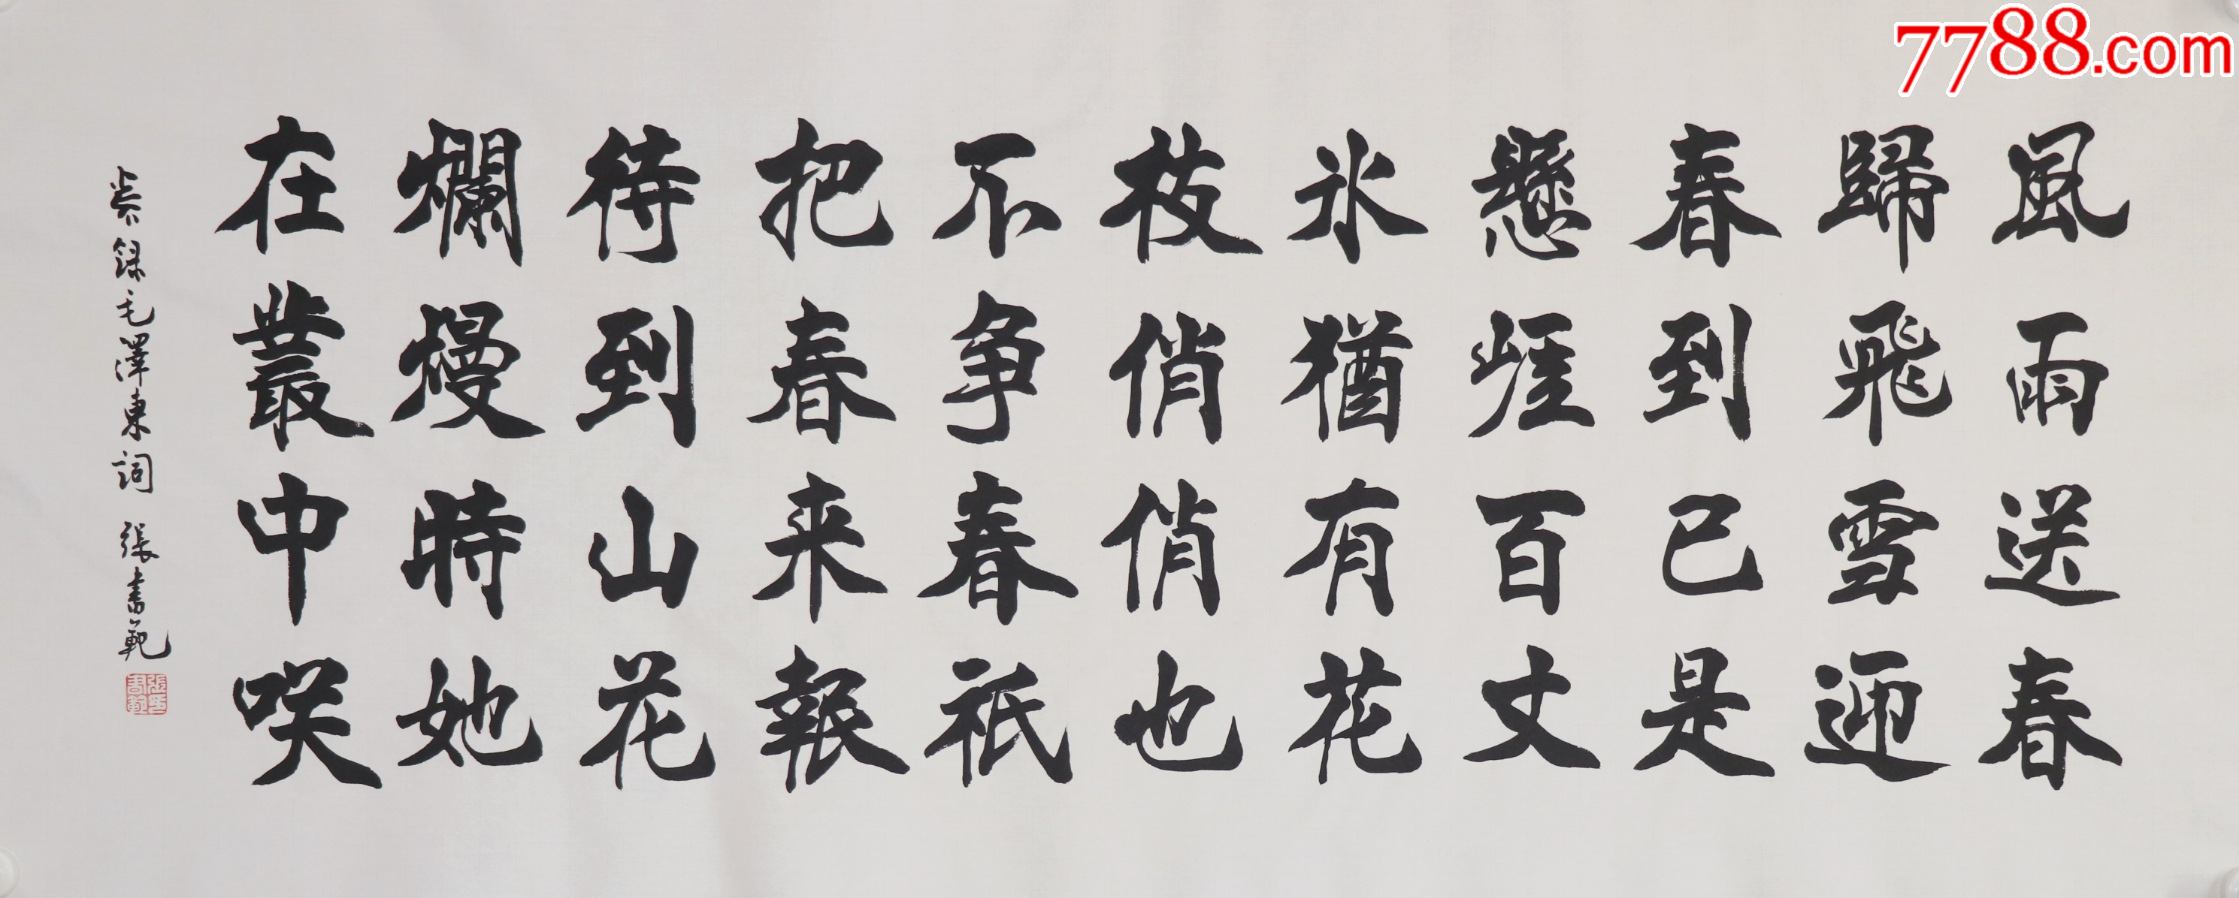 風雨送春
歸飛雪迎
春到已是
懸崕百丈
冰猶有花
枝俏俏也
不争春祇
把春来報
待到山花
爛熳時她
在叢中咲
恭録毛澤東詞 張書範
7788.com